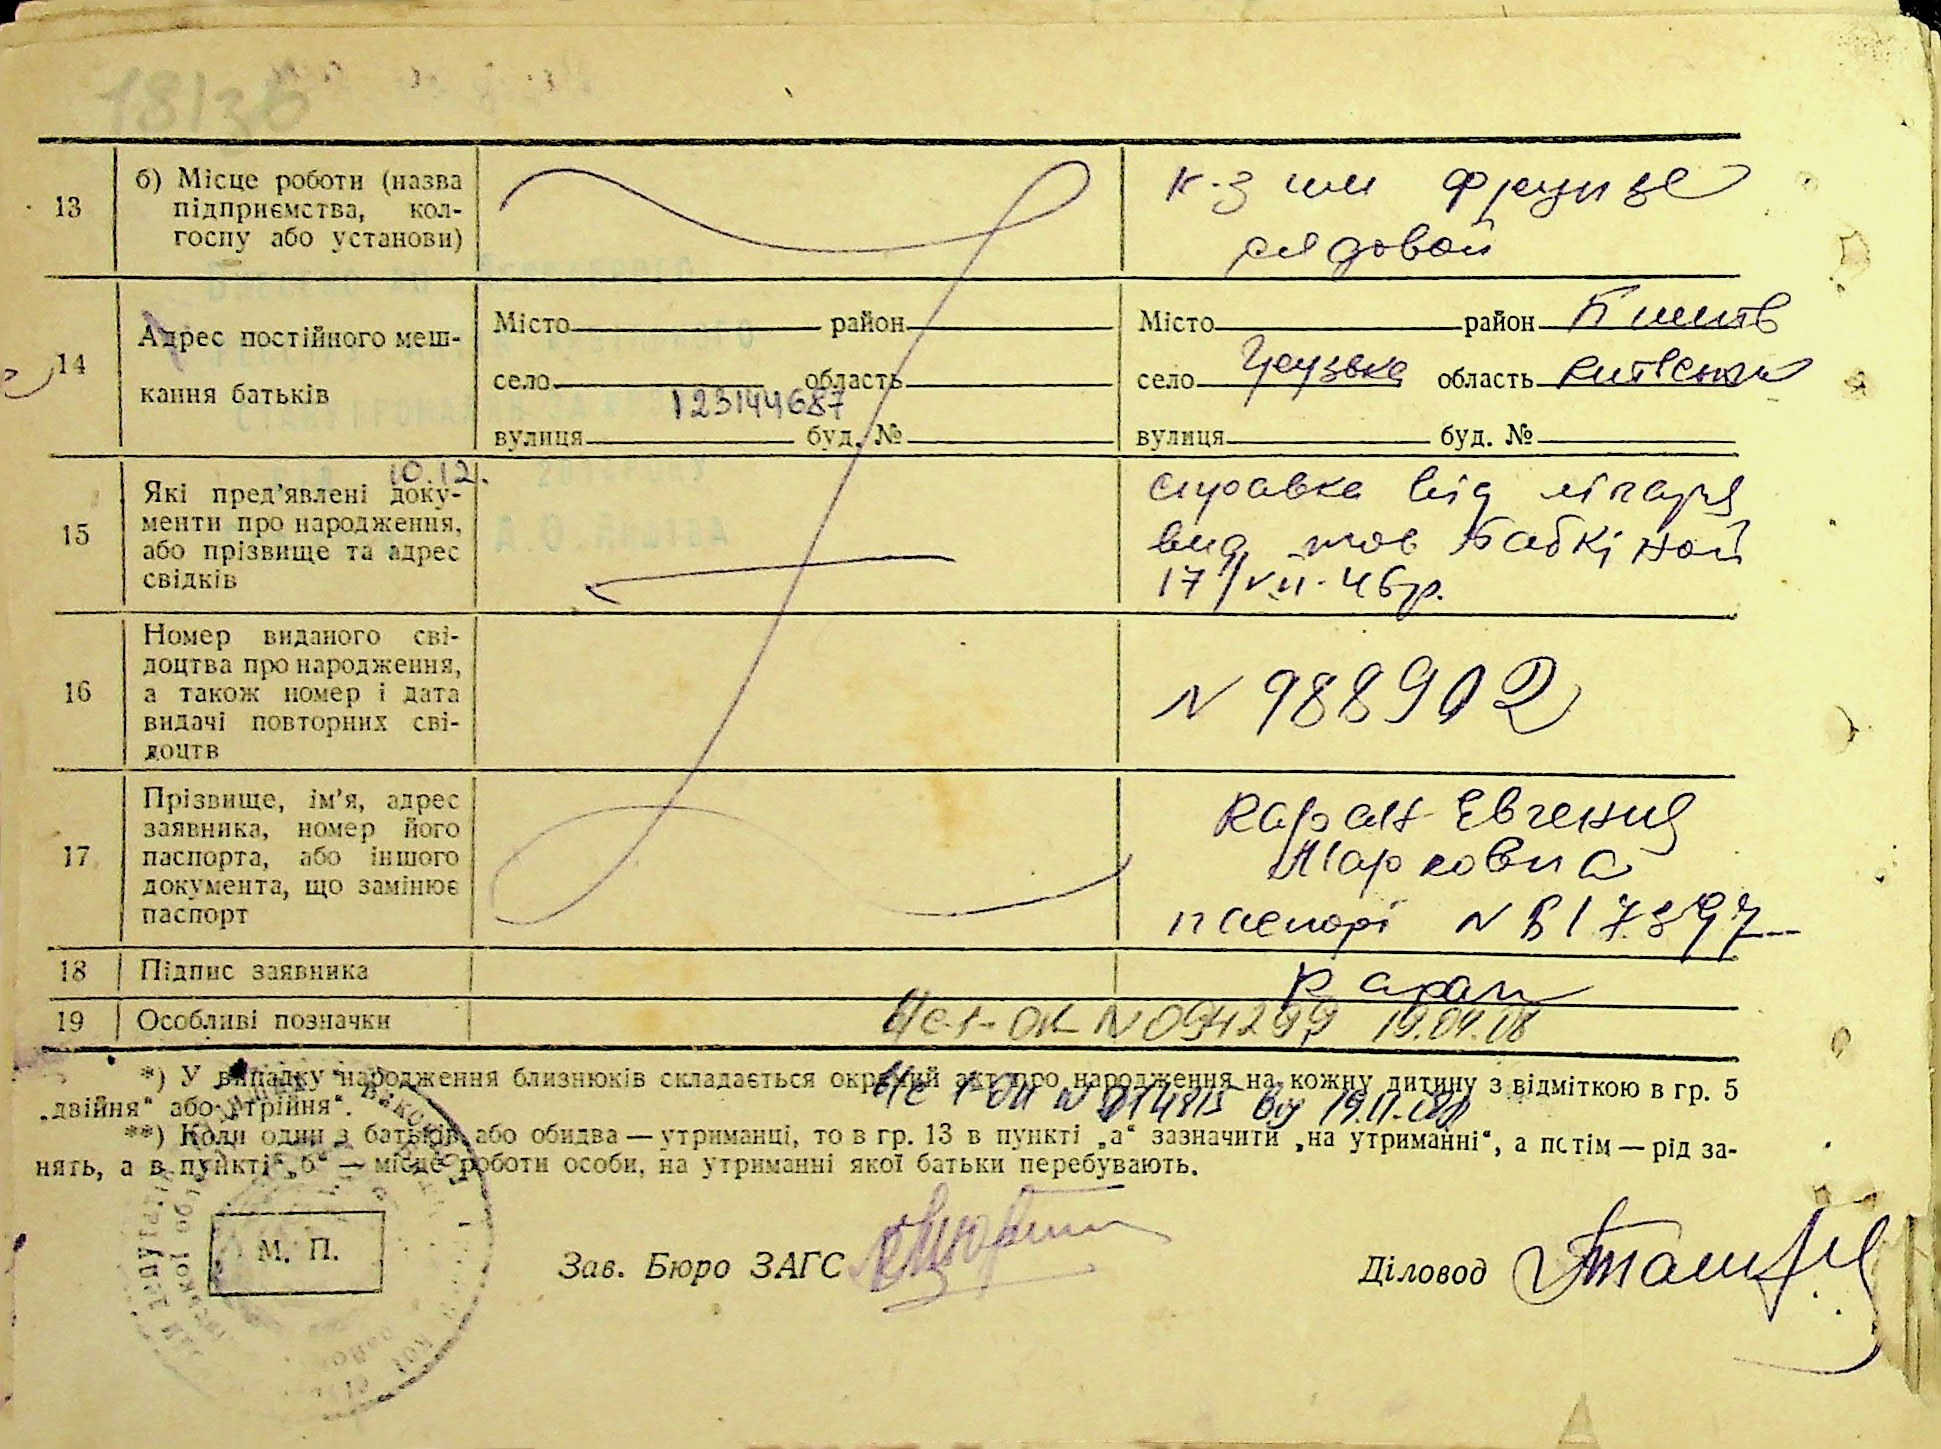 13
б) Місце роботи (назва
підприємства, кол-
госпу або установи)
к-з им Фрунзе
рядовой
14
Адрес постійного меш-
кання батьків
Місто район
село область
123144687
вулиця буд. №
Місто район
село Грузьке область
вулиця буд. №
15
10.12.
Які пред’явлені доку-
менти про народження,
або прізвище та адрес
свідків
справка від лікаря
вид тов Бабкіной
17/VII-46р.
16
Номер виданого сві-
доцтва про народження,
а також номер і дата
видачі повторних сві-
доцтв
N 988902
17
Прізвище, ім’я, адрес
заявника, номер його
паспорта, або іншого
документа, що замінює
паспорт
Каран Евгения
Марковна
паспорт N
18
Підпис заявника
Каран
19
Особливі позначки
N 094299 19.04.08
*) У випадку народження близнюків складається окремий акт про народження на кожну дитину з відміткою в гр. 5
„двійня“ або „трійня“.
**) Коли один з батьків або обидва — утриманці, то в гр. 13 в пункті „а“ зазначити „на утриманні“, а потім — рід за-
нять, а в пункті „б“ — місце роботи особи, на утриманні якої батьки перебувають.
М. П.
Зав. Бюро ЗАГС
Діловод